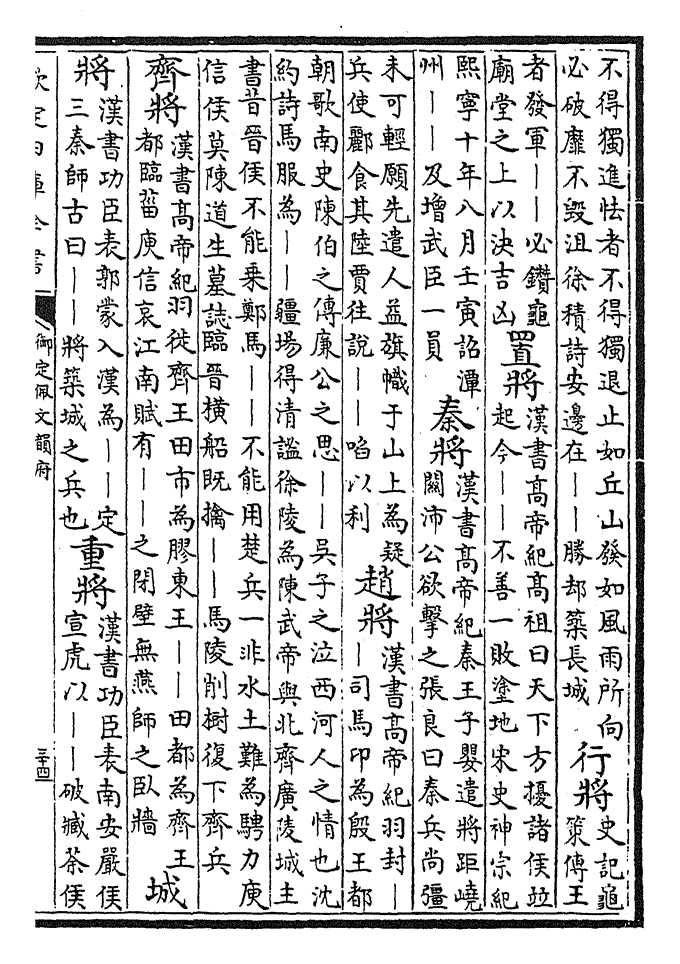 不得獨進怯者不得獨退止如丘山發如風雨所向
必破靡不毁沮徐積詩安邊在——勝却築長城
行將
史記龜
策傳王
者發軍——必鑽龜
廟堂之上以決吉凶
置將
漢書髙帝紀髙祖曰天下方擾諸侯竝
起今——不善一敗塗地宋史神宗紀
熙寧十年八月壬寅詔潭
州——及增武臣一員
秦將
漢書髙帝紀秦王子嬰遣將距嶢
關沛公欲擊之張良曰秦兵尚彊
未可輕願先遣人益旗幟于山上為疑
兵使酈食其陸賈往說——啗以利
趙將
漢書髙帝紀羽封—
—司馬卬為殷王都
朝歌南史陳伯之傳廉公之思——吳子之泣西河人之情也沈
約詩馬服為——疆場得清謐徐陵為陳武帝與北齊廣陵城主
書昔晉侯不能乗鄭馬——不能用楚兵一非水土難為騁力庾
信侯莫陳道生墓誌臨晉橫船既擒——馬陵削樹復下齊兵
齊將
漢書髙帝紀羽徙齊王田市為膠東王——田都為齊王
都臨菑庾信哀江南賦有——之閉壁無燕師之臥牆
城
將
漢書功臣表郭蒙入漢為——定
三秦師古曰——將築城之兵也
重將
漢書功臣表南安嚴侯
宣虎以——破臧荼侯
欽定四庫全書
御定佩文韻府
三十四